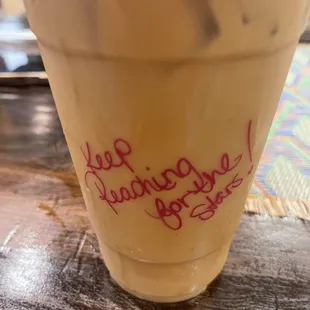 Keep
Reaching
for the
Stars!